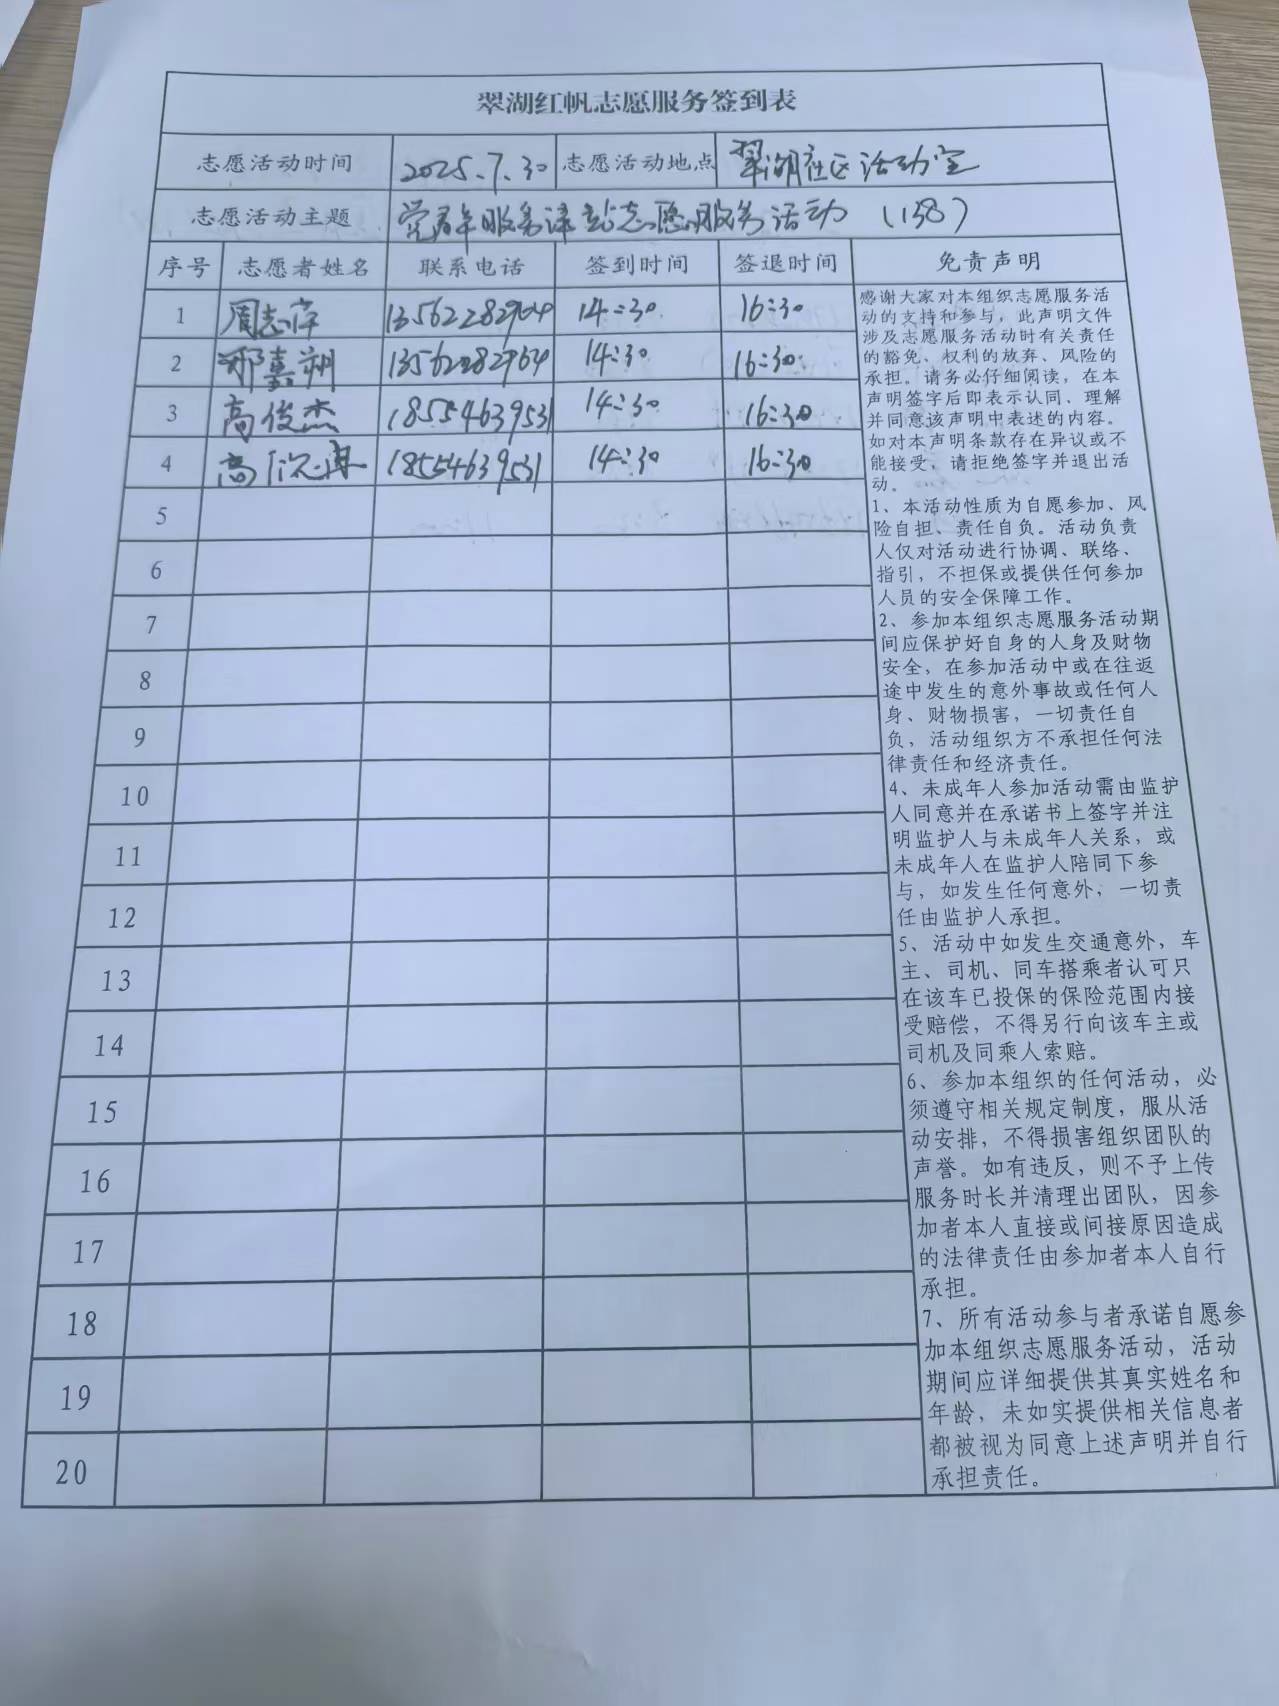 翠湖红帆志愿服务签到表
志愿活动时间 2025.7.30 志愿活动地点 翠湖社区活动室
志愿活动主题 党群服务驿站志愿服务活动 (138)
序号 志愿者姓名 联系电话 签到时间 签退时间 免责声明
1 周志宇 14:30 16:30
2 邢嘉翊 14:30 16:30
3 高俊杰 18554639531 14:30 16:30
4 高 18554639531 14:30 16:30
5
6
7
8
9
10
11
12
13
14
15
16
17
18
19
20
感谢大家对本组织志愿服务活
动的支持和参与，此声明文件
涉及志愿服务活动时有关责任
的豁免、权利的放弃、风险的
承担。请务必仔细阅读，在本
声明签字后即表示认同、理解
并同意该声明中表述的内容。
如对本声明条款存在异议或不
能接受，请拒绝签字并退出活
动。
1、本活动性质为自愿参加、风
险自担、责任自负。活动负责
人仅对活动进行协调、联络、
指引，不担保或提供任何参加
人员的安全保障工作。
2、参加本组织志愿服务活动期
间应保护好自身的人身及财物
安全，在参加活动中或在往返
途中发生的意外事故或任何人
身、财物损害，一切责任自
负，活动组织方不承担任何法
律责任和经济责任。
4、未成年人参加活动需由监护
人同意并在承诺书上签字并注
明监护人与未成年人关系，或
未成年人在监护人陪同下参
与，如发生任何意外，一切责
任由监护人承担。
5、活动中如发生交通意外，车
主、司机、同车搭乘者认可只
在该车已投保的保险范围内接
受赔偿，不得另行向该车主或
司机及同乘人索赔。
6、参加本组织的任何活动，必
须遵守相关规定制度，服从活
动安排，不得损害组织团队的
声誉。如有违反，则不予上传
服务时长并清理出团队，因参
加者本人直接或间接原因造成
的法律责任由参加者本人自行
承担。
7、所有活动参与者承诺自愿参
加本组织志愿服务活动，活动
期间应详细提供其真实姓名和
年龄，未如实提供相关信息者
都被视为同意上述声明并自行
承担责任。